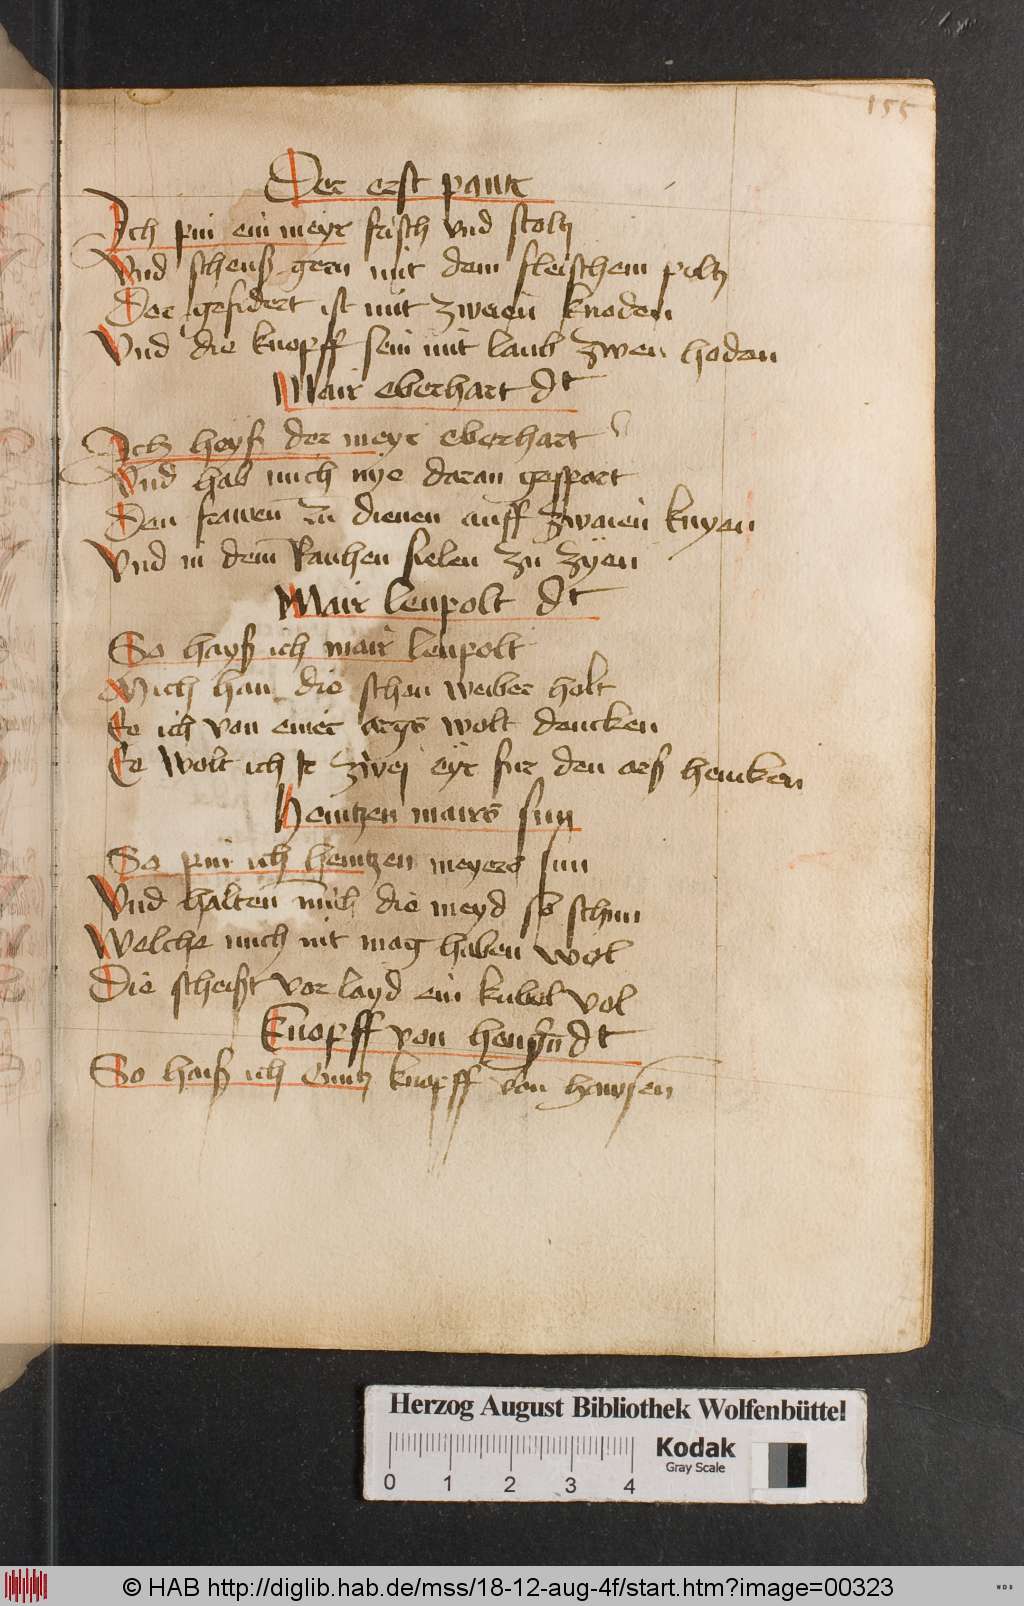 155
Der erst pawr
Ich pin ein meyr frisch vnd stoltz
Vnd scheuß gern mit dem fleischem poltz
Der gefidert ist mit zweien knoden
Vnd die knopff sein mit laub zwen hoden
Mair eberhart dt
Ich heyß der meyr eberhart
Vnd hab mich nye daran gesppart
Den frawen zu dienen auff zwaien knyen
Vnd in dem Rauhen sielen zu zyen
Mair leupolt dt
So hayß ich mair leupolt
Mich han die schon weiber holt
Ee ich von einer args wolt dencken
Ee wolt ich ir zwej eyr fur den ars hencken
Heintzen mairs sun
So pin ich heintzen meyers sun
Vnd halten mich die meyd so schun
Welche mich nit mag haben wol
Die scheißt vor layd ein kubel vol
Knopff von dt
So haiß ich Cuntz knopff von hawsen
Herzog August Bibliothek Wolfenbüttel
Kodak
Gray Scale
0 1 2 3 4
© HAB http://diglib.hab.de/mss/18-12-aug-4f/start.htm?image=00323